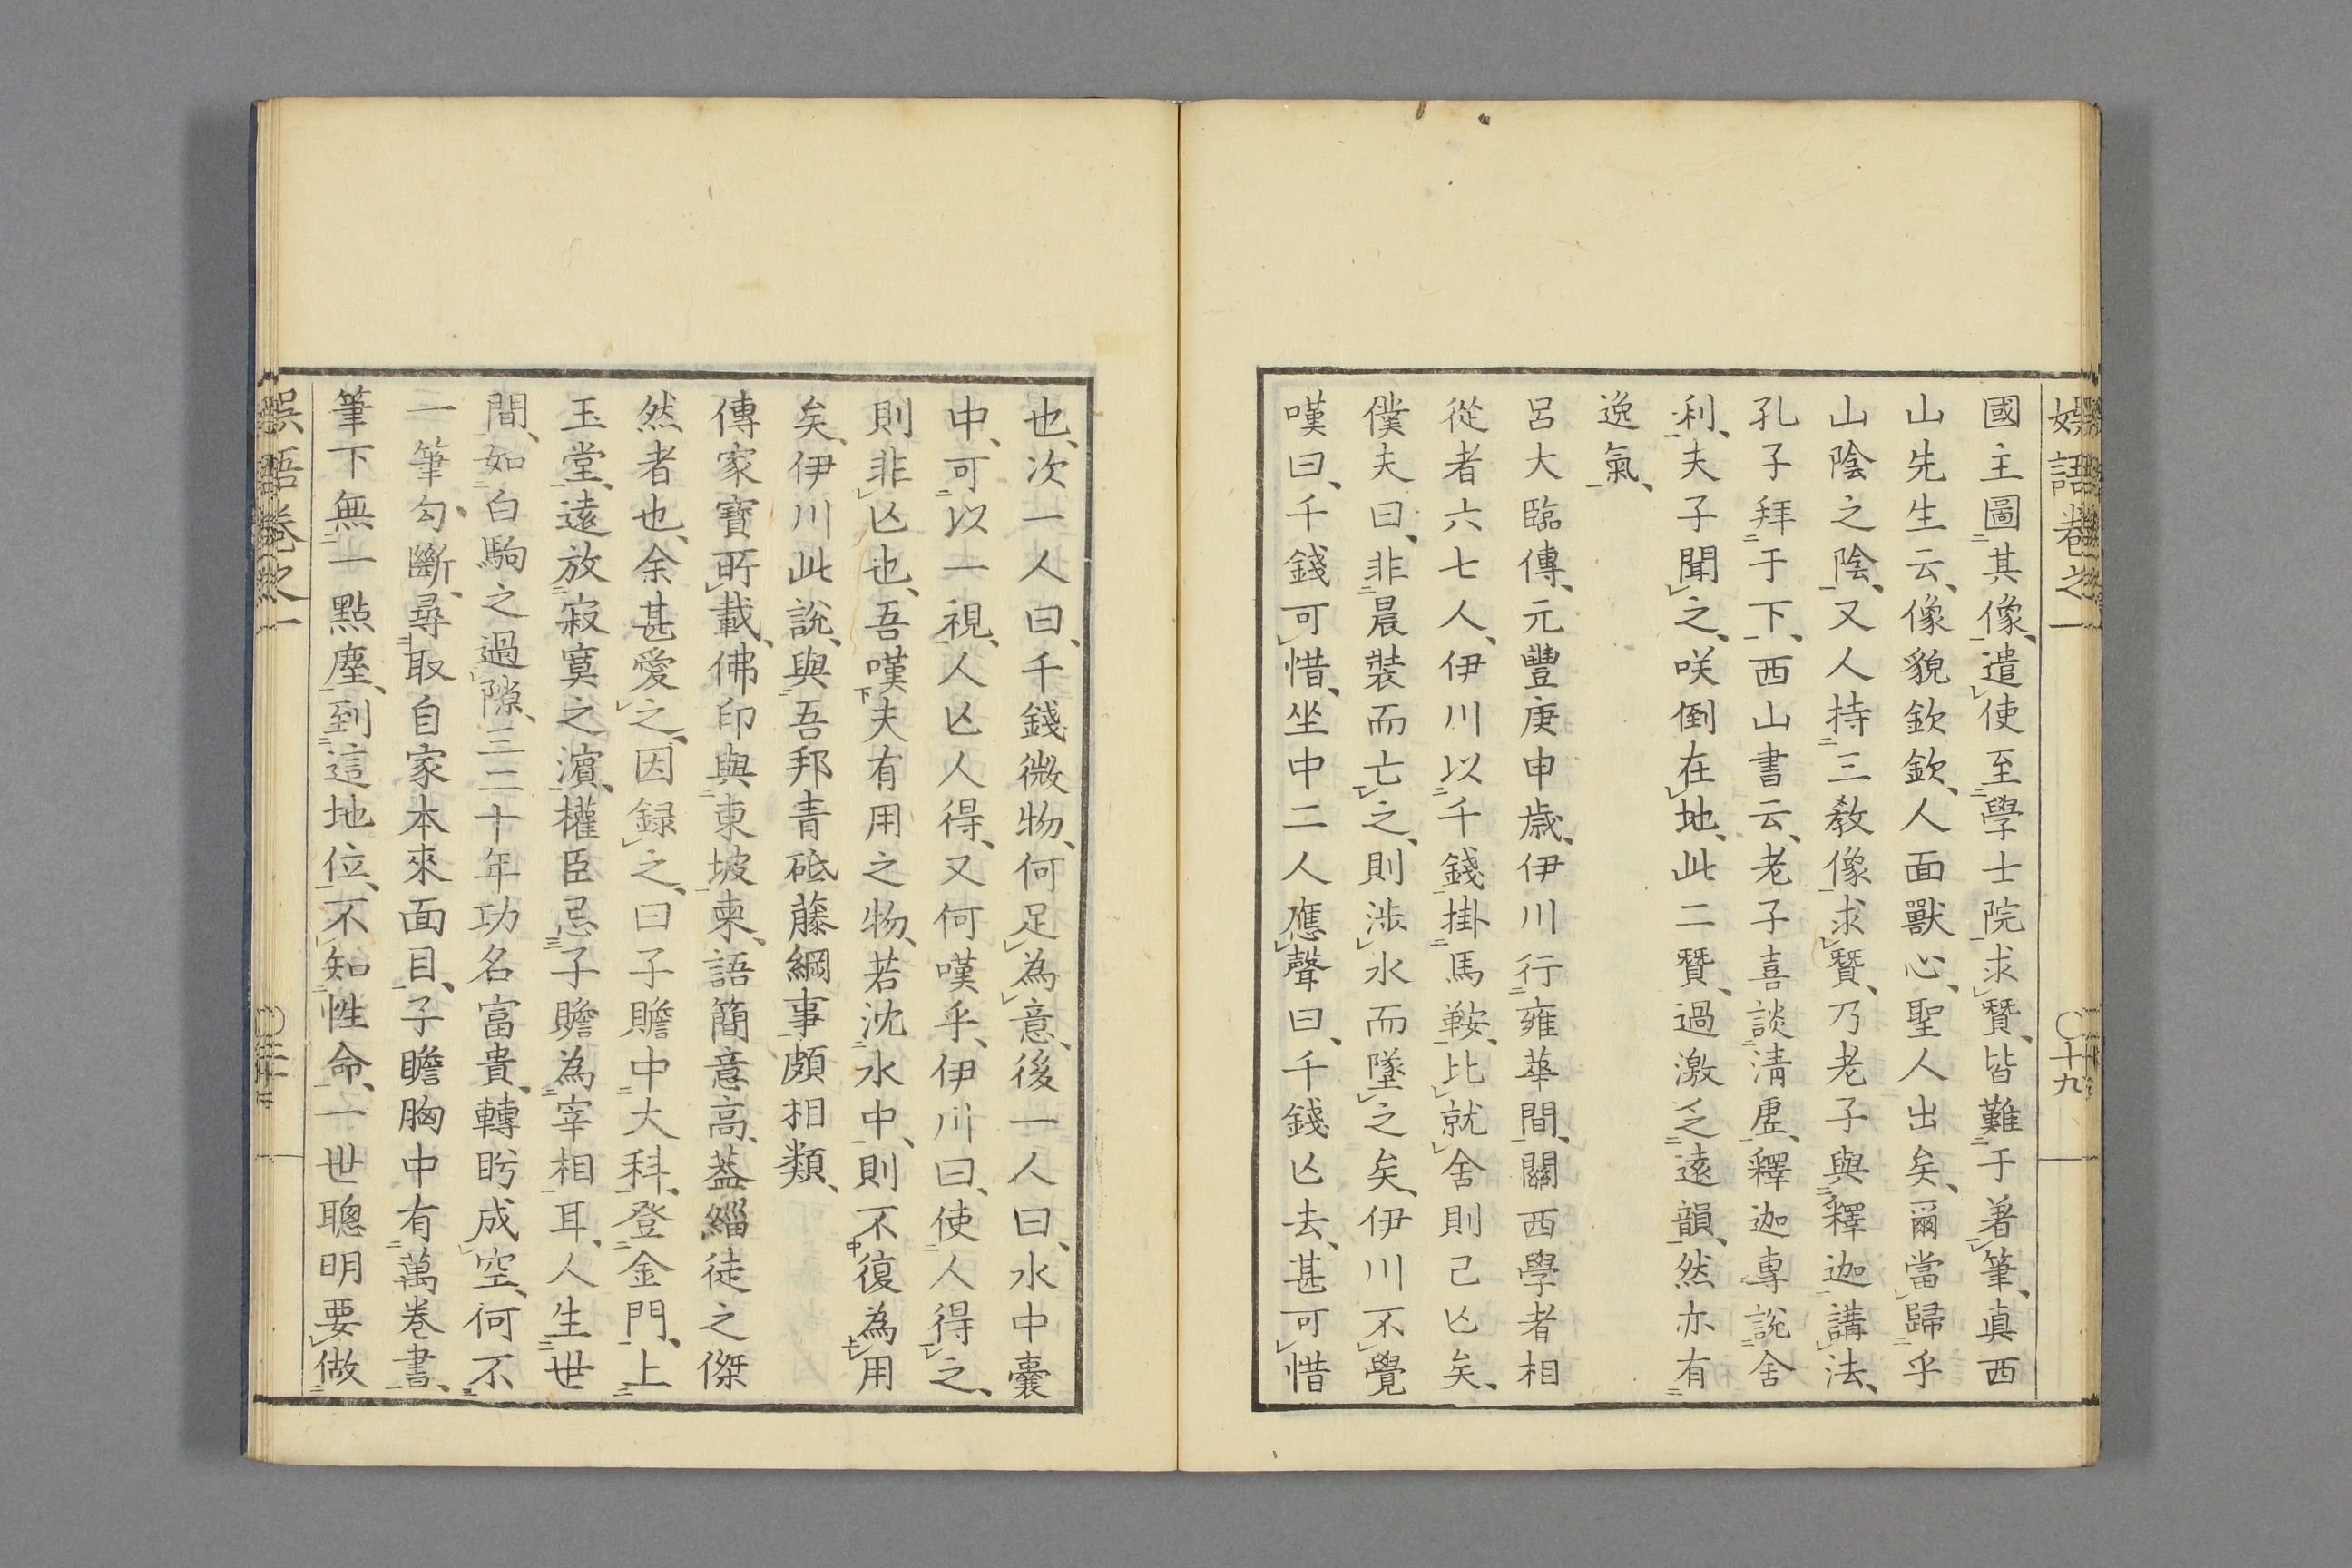 國主圖其像、遣使至學士院求贊、皆難于著筆、真西
山先生云、像貌欽欽、人面獸心、聖人出矣、爾當歸乎
山陰之陰、又人持三教像求贊、乃老子與釋迦講法、
孔子拜于下、西山書云、老子喜談淸虛、釋迦專說舍
利、夫子聞之、咲倒在地、此二贊、過激乏遠韻、然亦有
逸氣、
呂大臨傳、元豐庚申歲、伊川行雍華間、關西學者相
從者六七人、伊川以千錢掛馬鞍、比就舍則己亾矣、
僕夫曰、非晨裝而亡之、則涉水而墜之矣、伊川不覺
嘆曰、千錢可惜、坐中二人應聲曰、千錢亾去、甚可惜
也、次一人曰、千錢微物、何足為意、後一人曰、水中囊
中、可以一視、人亾人得、又何嘆乎、伊川曰、使人得之、
則非亾也、吾嘆夫有用之物、若沈水中、則不復為用
矣、伊川此説、與吾邦青砥藤綱事頗相類、
傳家寶所載、佛印與東坡柬、語簡意高、葢緇徒之傑
然者也、余甚愛之、因録之、曰子瞻中大科、登金門、上
玉堂、遠放寂寞之濵、權臣忌子瞻為宰相耳、人生世
間、如白駒之過隙、三二十年功名富貴、轉盻成空、何不
一筆勾斷、尋取自家本來面目、子瞻胸中有萬卷書、
筆下無一點塵、到這地位、不知性命、一世聰明要做
語卷之一
〇十九
語卷之一